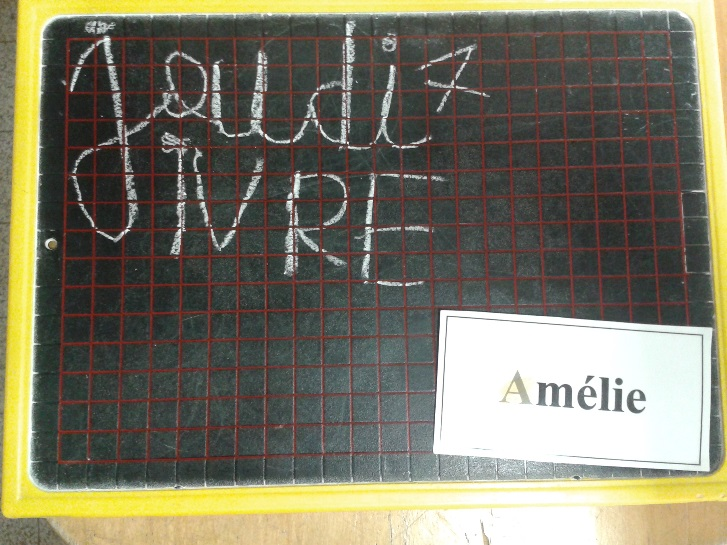 Jeudi 4
IVRE
Amélie